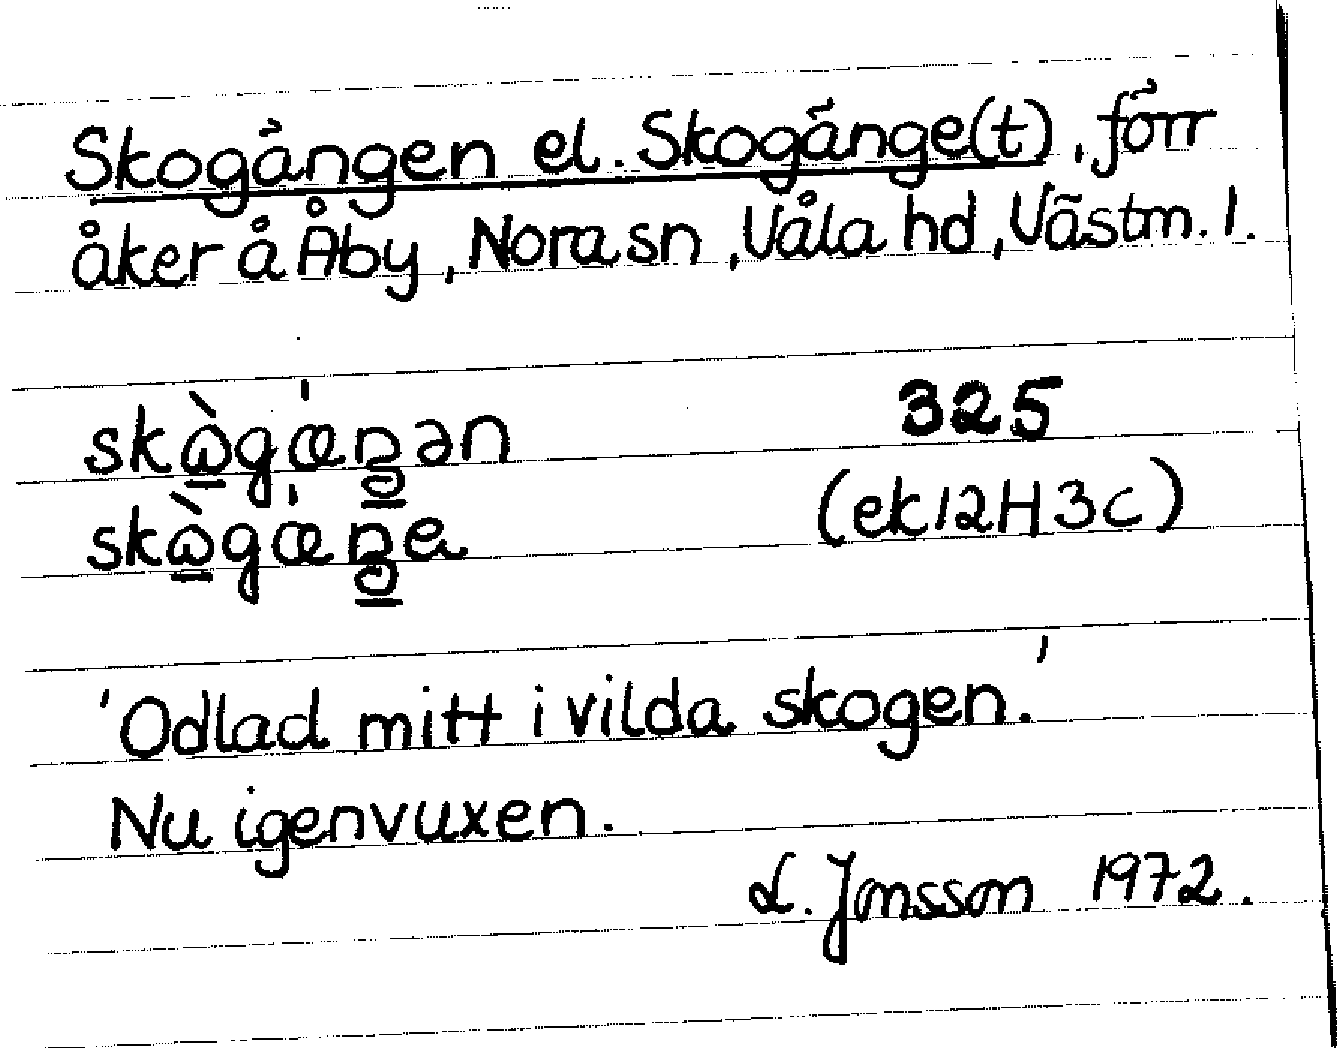 Skogängen el. Skogänge(t), förr
åker å Åby, Nora sn, Våla hd, Västm. l.
skὼ̲gæ̍ŋ̲ən 325
skὼ̲gæ̍ŋ̲e (ek 12H 3c)
'Odlad mitt i vilda skogen.'
Nu igenvuxen.
L. Jonsson 1972.